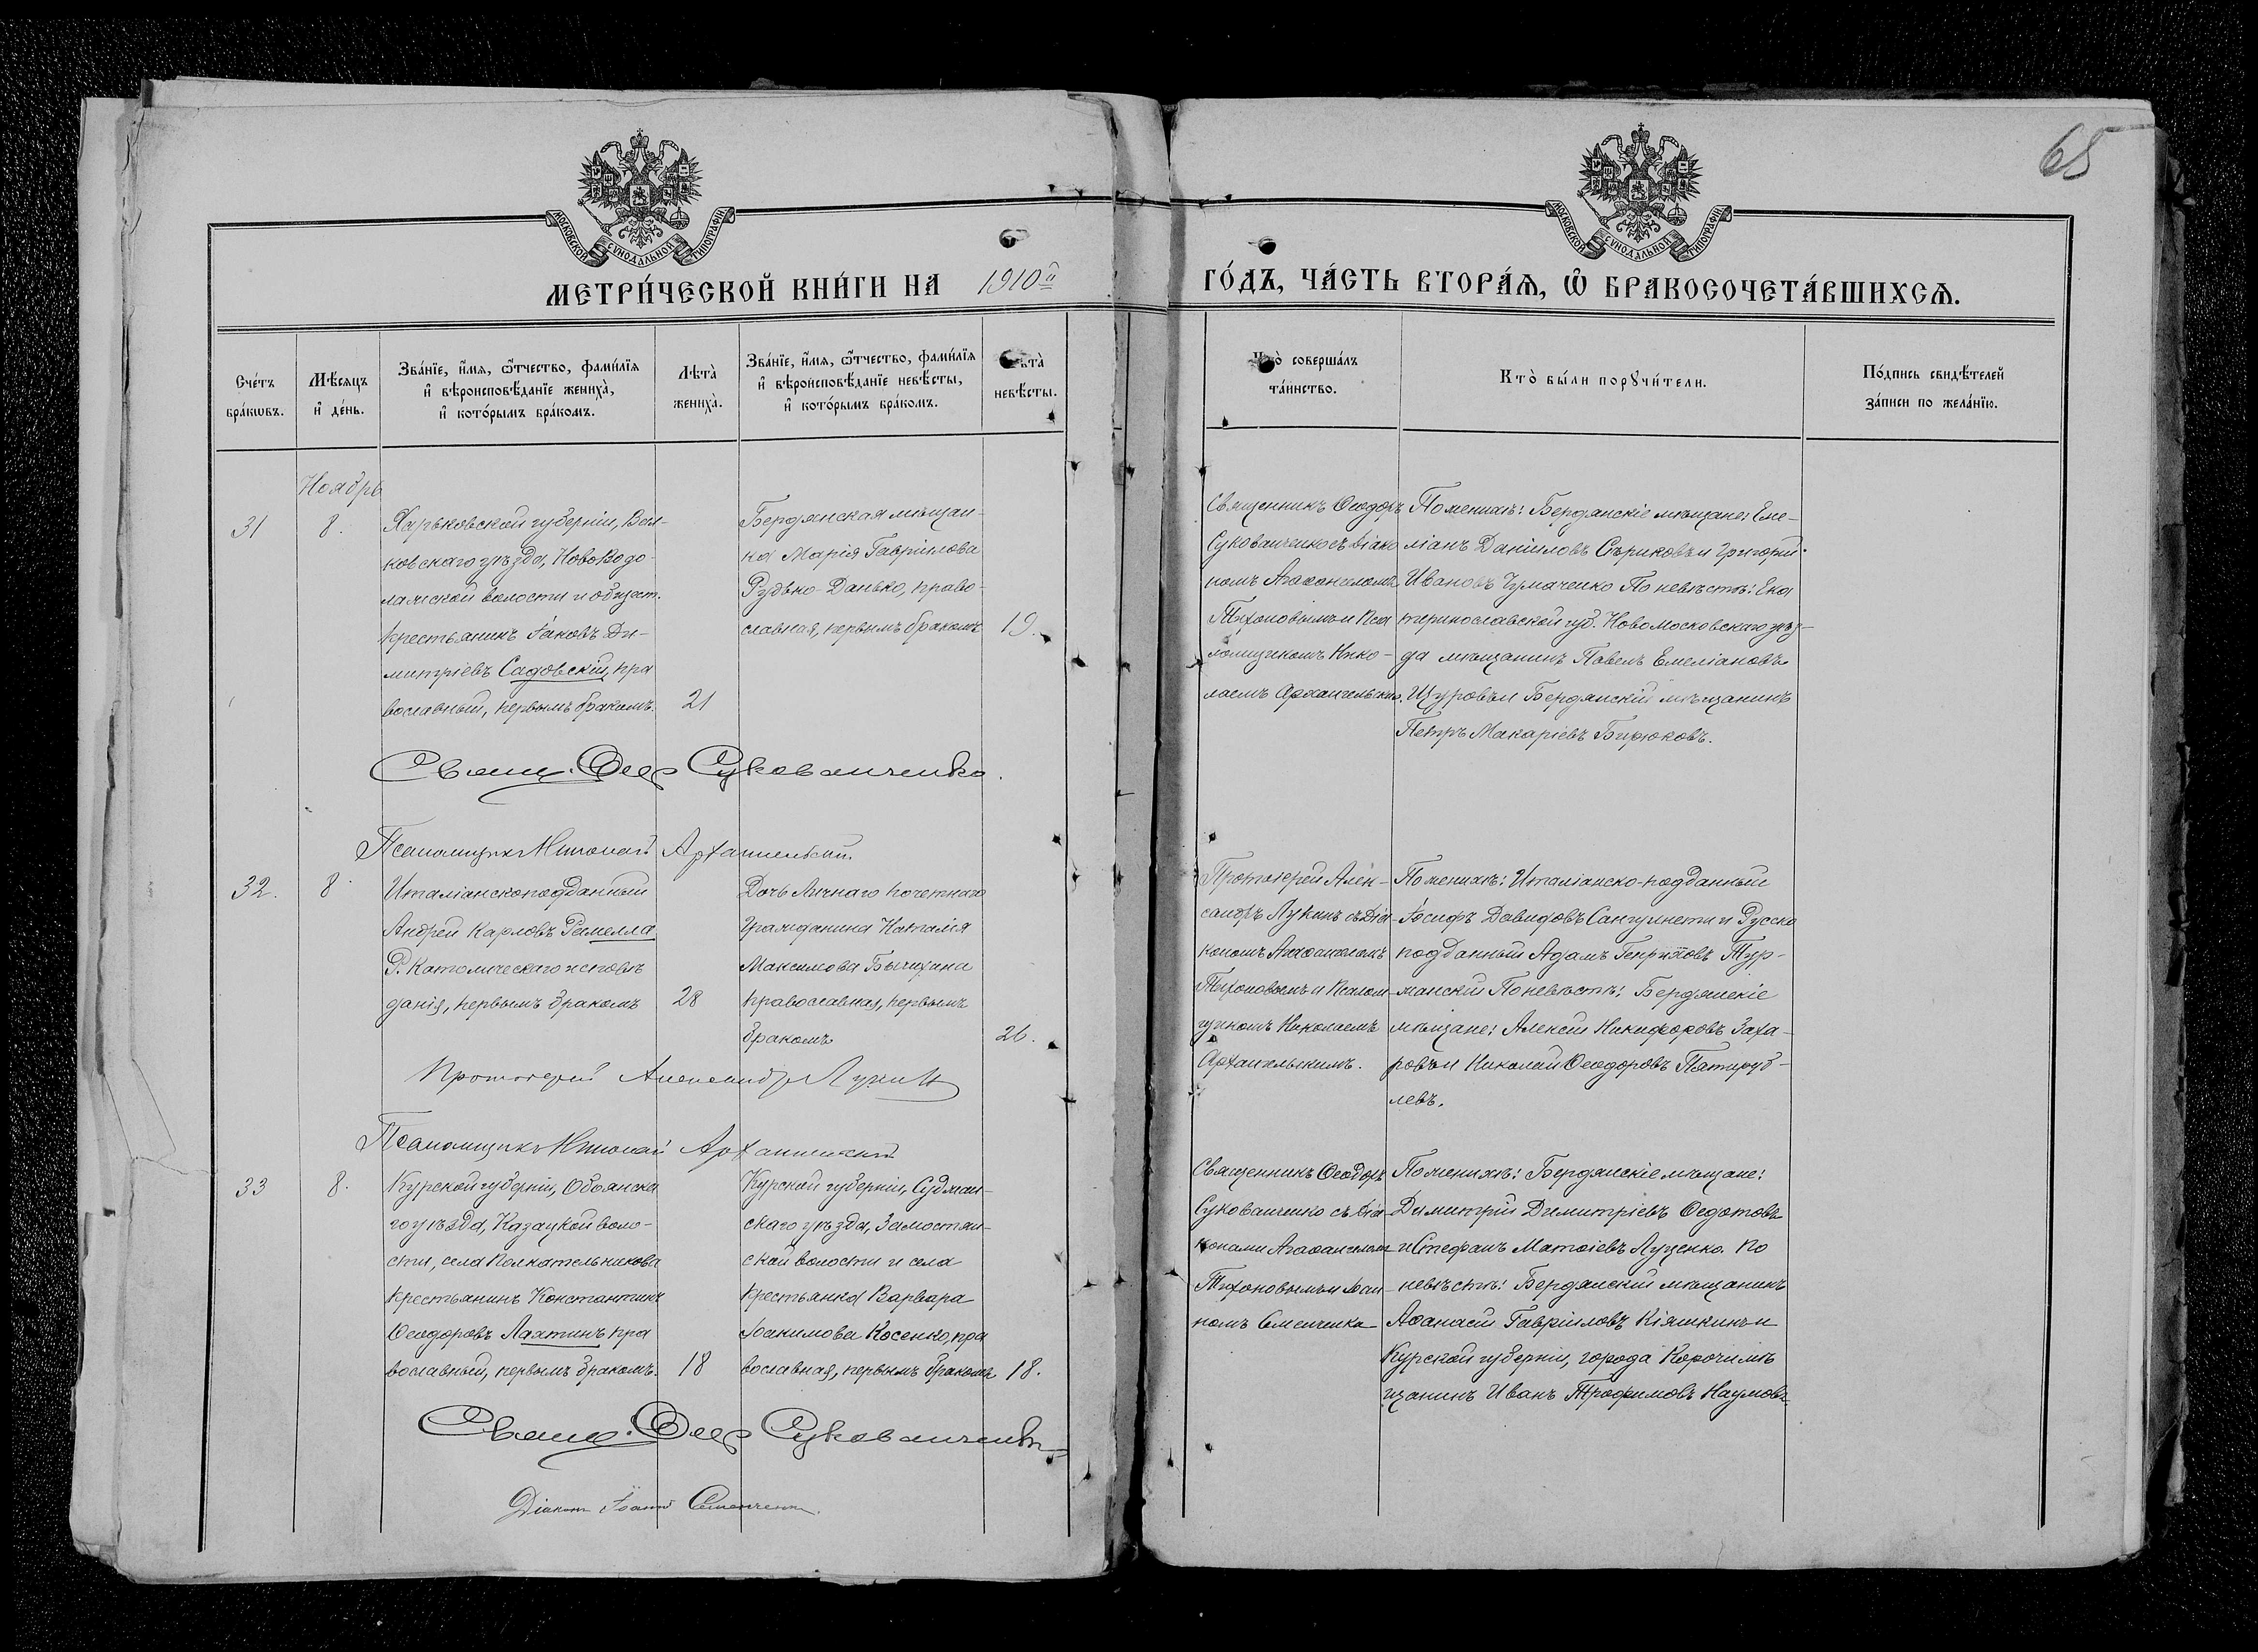 65
МОСКОВСКОЙ СѴНОДАЛЬНОЙ ТИПОГРАФІИ
МОСКОВСКОЙ СѴНОДАЛЬНОЙ ТИПОГРАФІИ
МЕТРИ́ЧЕСКОЙ КНИ́ГИ НА 1910й
ГО́ДЪ, ЧА́СТЬ ВТОРА́Я, Ѿ БРАКОСОЧЕТА́ВШИХСЯ.
Сче́тъ бра́кѡвъ.
Мѣ́сяцъ и҆ де́нь.
Зва́нїе, и҆́мя, ѻ҆́тчество, фами́лїя и҆ вѣроисповѣ́данїе жениха̀, и҆ кото́рымъ бра́комъ.
Лѣта̀ жениха̀.
Зва́нїе, и҆́мя, ѻ҆́тчество, фами́лїя и҆ вѣроисповѣ́данїе невѣ́сты, и҆ кото́рымъ бра́комъ.
Лѣта̀ невѣ́сты.
Кто̀ соверша́лъ та́инство.
Кто̀ бы́ли порꙋчи́тели.
По́дпись свидѣ́телей за́писи по жела́нїю.
Ноябрь
31
8.
Харьковской губерніи, Вал-
ковскаго уѣзда, НовоВодо-
лажской волости и общест.
крестьянинъ Іаковъ Ди-
митріевъ Садовскій, пра
вославный, первымъ бракомъ.
21
Бердянская мѣщан-
ка Марія Гавріилова
Рудько-Данько, право-
славная, первымъ бракомъ
19.
Священникъ Ѳеодоръ
Сукованченко съ діако
номъ Агаѳангеломъ
Тихоновымъ и Пса
ломщикомъ Нико-
лаемъ Архангельским.
По женихѣ: Бердянскіе мѣщане: Еме-
ліанъ Даніиловъ Сѣриковъ и Григорій
Ивановъ Чумаченко По невѣстѣ: Ека
теринославской губ. Новомосковскаго уѣз-
да мѣщанинъ Павелъ Емеліановъ
Щуровъ и Бердянскій мѣщанинъ
Петръ Макаріевъ Бирюковъ.
Свящ. Ѳеод Сукованченко.
Псаломщикъ Николай Архангельскій
32.
8
Италіанскоподданный
Андрей Карловъ Рамелла
Р. Католическаго исповѣ
данія, первымъ бракомъ
28
Дочь Личнаго почетнаго
Гражданина Наталія
Максимова Бычихина
православная, первымъ
бракомъ
26.
Протоіерей Алек-
сандръ Лукинъ съ Діа
кономъ Агаѳангеломъ
Тихоновымъ и Псалом
щикомъ Николаемъ
Архангельскимъ.
По женихѣ: Италіанско-подданный
Іосифъ Давидовъ Сангуинети и Русско
подданный Адамъ Генриховъ Тур-
манскій По невѣстѣ: Бердянскіе
мѣщане: Алексій Никифоровъ Заха-
ровъ и Николай Ѳеодоровъ Пятируб-
левъ.
Протоіерей Александръ Лукинъ
Псаломщикъ Николай Архангельскій
33
8.
Курской губерніи, Обоянска
го уѣзда, Казацкой воло-
сти, села Колкательникова
крестьянинъ Константинъ
Ѳеодоровъ Лахтинъ пра
вославный, первымъ бракомъ.
18
Курской губерніи, Суджан-
скаго уѣзда, Замостян-
ской волости и села
крестьянка Варвара
Іоакимова Косенко, пра
вославная, первымъ бракомъ
18.
Священникъ Ѳеодоръ
Сукованченко съ діа
конами Агаѳангеломъ
Тихоновымъ и Іоан
номъ Семенченко
По женихѣ: Бердянскіе мѣщане:
Димитрій Димитріевъ Ѳедотовъ
и Стефанъ Матѳіевъ Луценко. По
невѣстѣ: Бердянскій мѣщанинъ
Аѳанасій Гавріиловъ Кіяшкинъ и
Курской губерніи, города Корочи мѣ
щанинъ Иванъ Трофимовъ Наумовъ
Свящ. Ѳеод Сукованченко
Діаконъ Іоаннъ Семенченко.